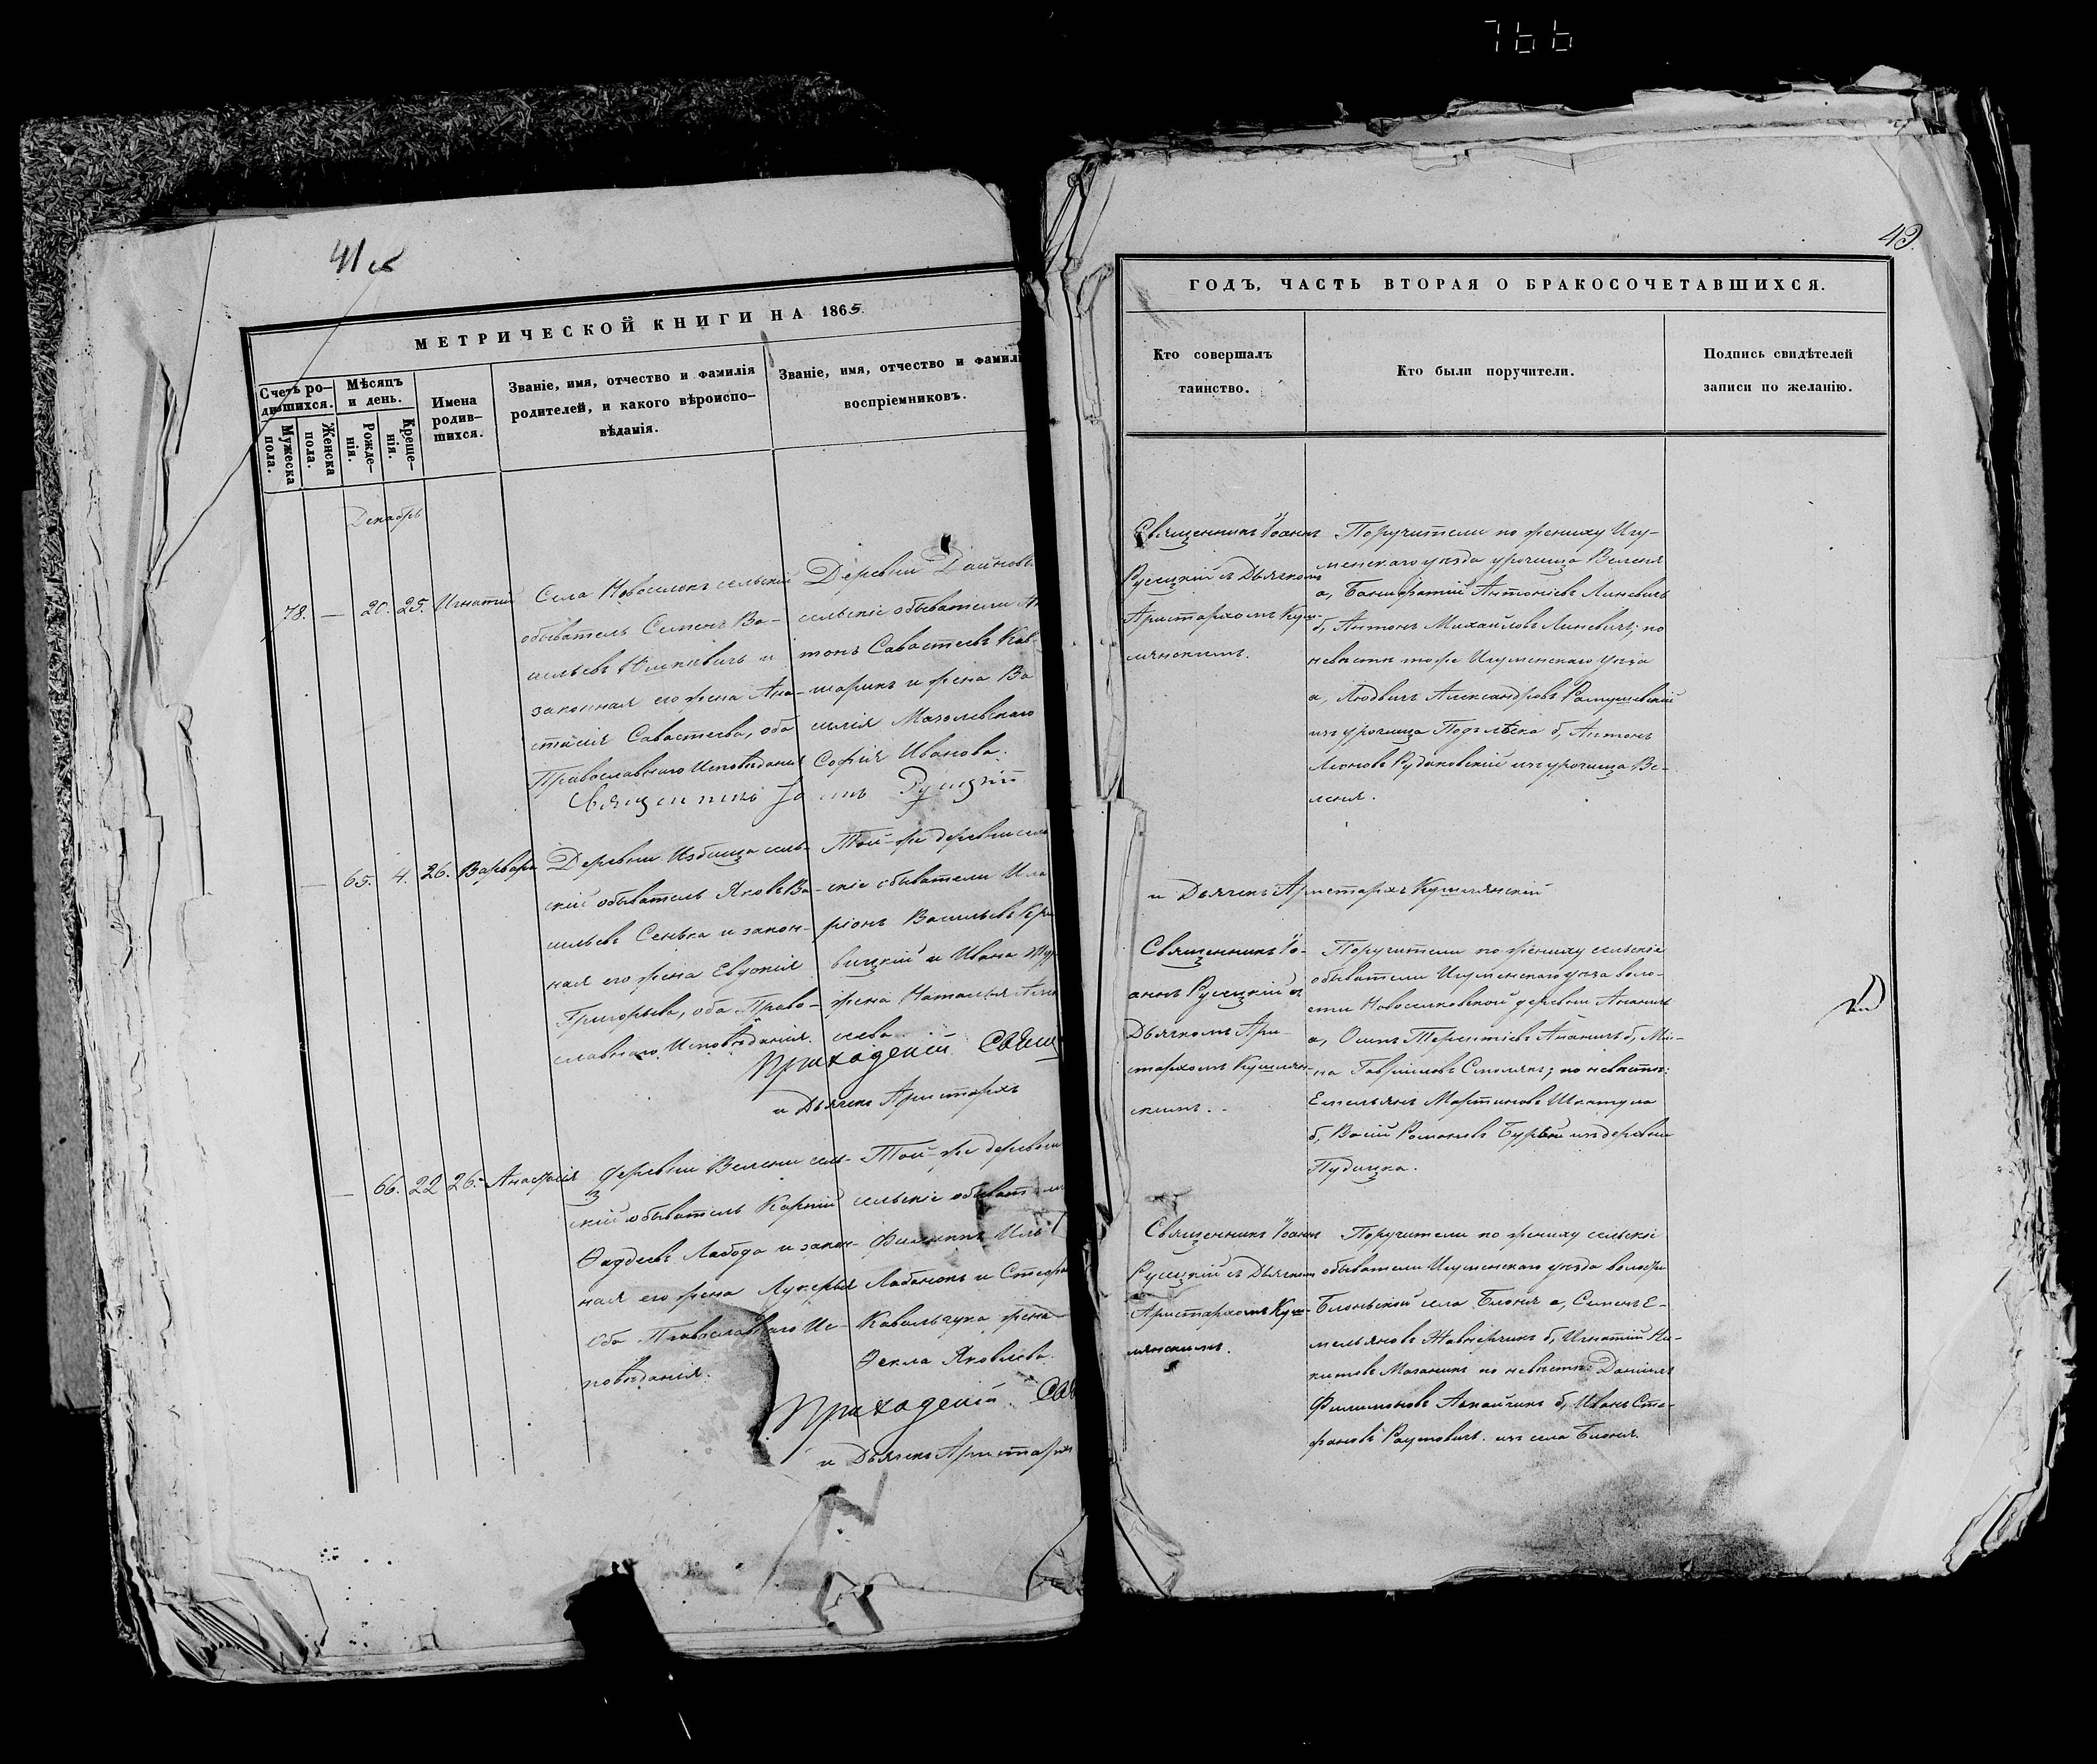 766
41 об
МЕТРИЧЕСКОЙ КНИГИ НА 1865.
Счетъ ро-
дившихся.
Мужеска
пола.
Женска
пола.
Мѣсяцъ
и день.
Рожде-
нія.
Креще-
нія.
Имена
родив-
шихся.
Званіе, имя, отчество и фамилія
родителей, и какого вѣроиспо-
вѣданія.
Званіе, имя, отчество и фамил
воспріемниковъ.
Декабрь
78. — 20. 25. Игнатій
Села Новоселокъ сельскій
обыватель Семенъ Ва-
сильевъ и
законная его жена Ана-
стасія Савастеева, оба
Православнаго Исповѣданія
Деревни Дайнов
сельскіе обыватели Ан
тонъ Савастеевъ Кав-
шарикъ и жена Ва
силія Мазолевскаго
Софія Иванова.
Священникъ Іоаннъ Русецкій
— 65. 4. 26. Варвара
Деревни Избища сель-
скій обыватель Яковъ Ва-
сильевъ Сенька и закон-
ная его жена Евдокія
Григорьева, оба Право-
славнаго Исповѣданія.
Той-же деревни сель
скіе обыватели Ила
ріонъ Васильевъ Кри
вицкій и Ивана
жена Наталья Алек
сеева.
Приходскій Свящ
и Дьячекъ Аристархъ
— 66. 22 26. Анастасія
Деревни Велени сель-
скій обыватель Карпій
Ѳаддеевъ Лабода и закон-
ная его жена Лукерья
оба Православнаго Ис-
повѣданія.
Той-же деревни
сельскіе обыватели
Филиппъ Иль
Лабанокъ и Стефа
Ковальчука жена
Ѳекла Яковлева.
Приходскій Св
и Дьячекъ Аристархъ
43.
ГОДЪ, ЧАСТЬ ВТОРАЯ О БРАКОСОЧЕТАВШИХСЯ.
Кто совершалъ
таинство.
Кто были поручители.
Подпись свидѣтелей
записи по желанію.
Священникъ Іоаннъ
Русецкій съ Дьячкомъ
Аристархомъ Куш-
лянскимъ.
Поручители по жениху Игу-
менскаго уѣзда урочища Веленя
а, Банифатій Антоніевъ Линевичъ
б, Антонъ Михайловъ Линевичъ; по
невѣстѣ тоже Игуменскаго уѣзда
а, Людвигъ Александровъ Ратушевскій
изъ урочища Подълѣска б, Антонъ
Леоновъ Рудаковскій изъ урочища Ве-
леня.
и Дьячекъ Аристархъ Кушлянскій
Священникъ Іо-
аннъ Русецкій съ
Дьячкомъ Ари-
стархомъ Кушлян-
скимъ.
Поручители по жениху сельскіе
обыватели Игуменскаго уѣзда воло-
сти Новоселковской деревни Ананичъ
а, Осипъ Терентіевъ Ананичъ б, Ми-
на Гавріиловъ Смолякъ; по невѣстѣ:
Емельянъ Мартиновъ Шкатула
б, Васій Романовъ изъ деревни
Пудицка.
Священникъ Іоаннъ
Русецкій съ Дьячкомъ
Аристархомъ Куш-
лянскимъ.
Поручители по жениху сельскіе
обыватели Игуменскаго уѣзда волости
Блоньской села Блоня а, Семенъ Е-
мельяновъ Жавнерчикъ б, Игнатій Ни-
китовъ Мазаникъ по невѣстѣ: Даніилъ
Филимоновъ б, Иванъ Сте-
фановъ Раутовичъ изъ села Блоня.